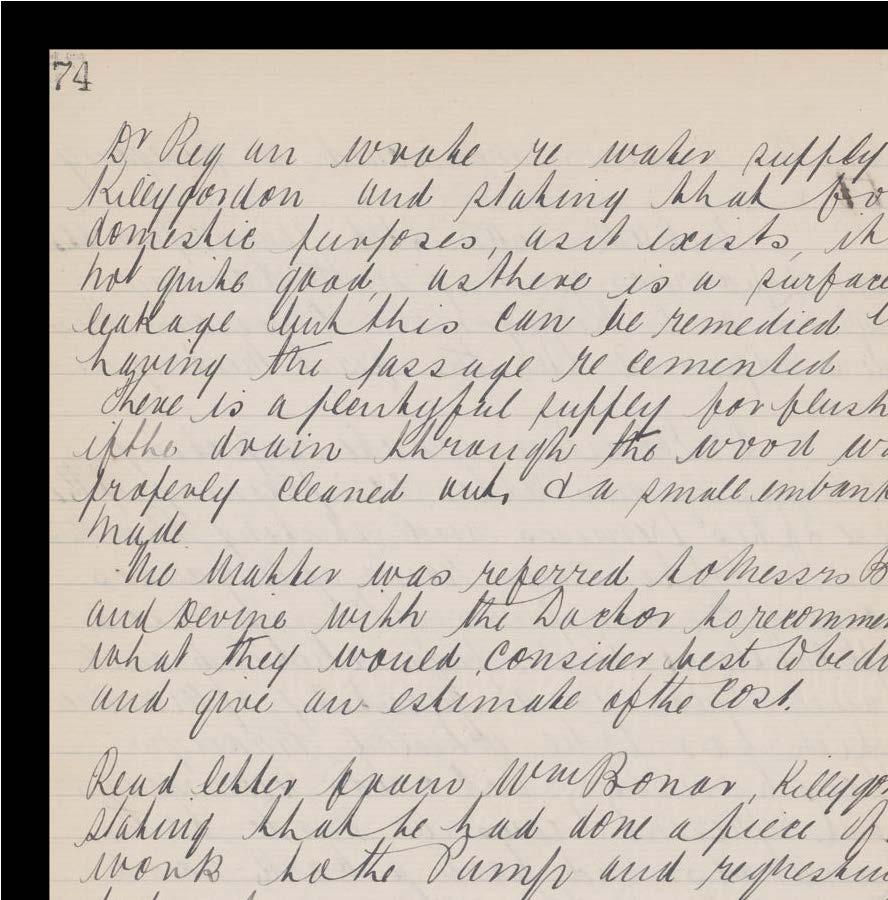 74
Dr Regan wrote re water supply
Killygordon and stating that for
domestic purposes, as it exists, it
not quite good, as there is a surface
leakage but this can be remedied
having the passage re cemented
There is a plentyful supply for flush
if the drain through the wood wa
properly cleaned out, & a small embank
made
The Matter was referred to Messrs B
and Devine with the Doctor to recommen
what they would consider best to be do
and give an estimate of the cost.
Read letter from Wm Bonar, Killygor
stating that he had done a piece of
work to the Pump and requestin